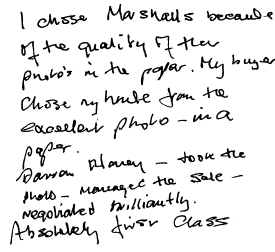 I chose Marshalls because
of the quality of their
photo's in the paper. My buyer
chose my house from the
excellent photo - in a
paper.
Damon - took the
photo - managed the sale -
negotiated brilliantly.
Absolutely first Class